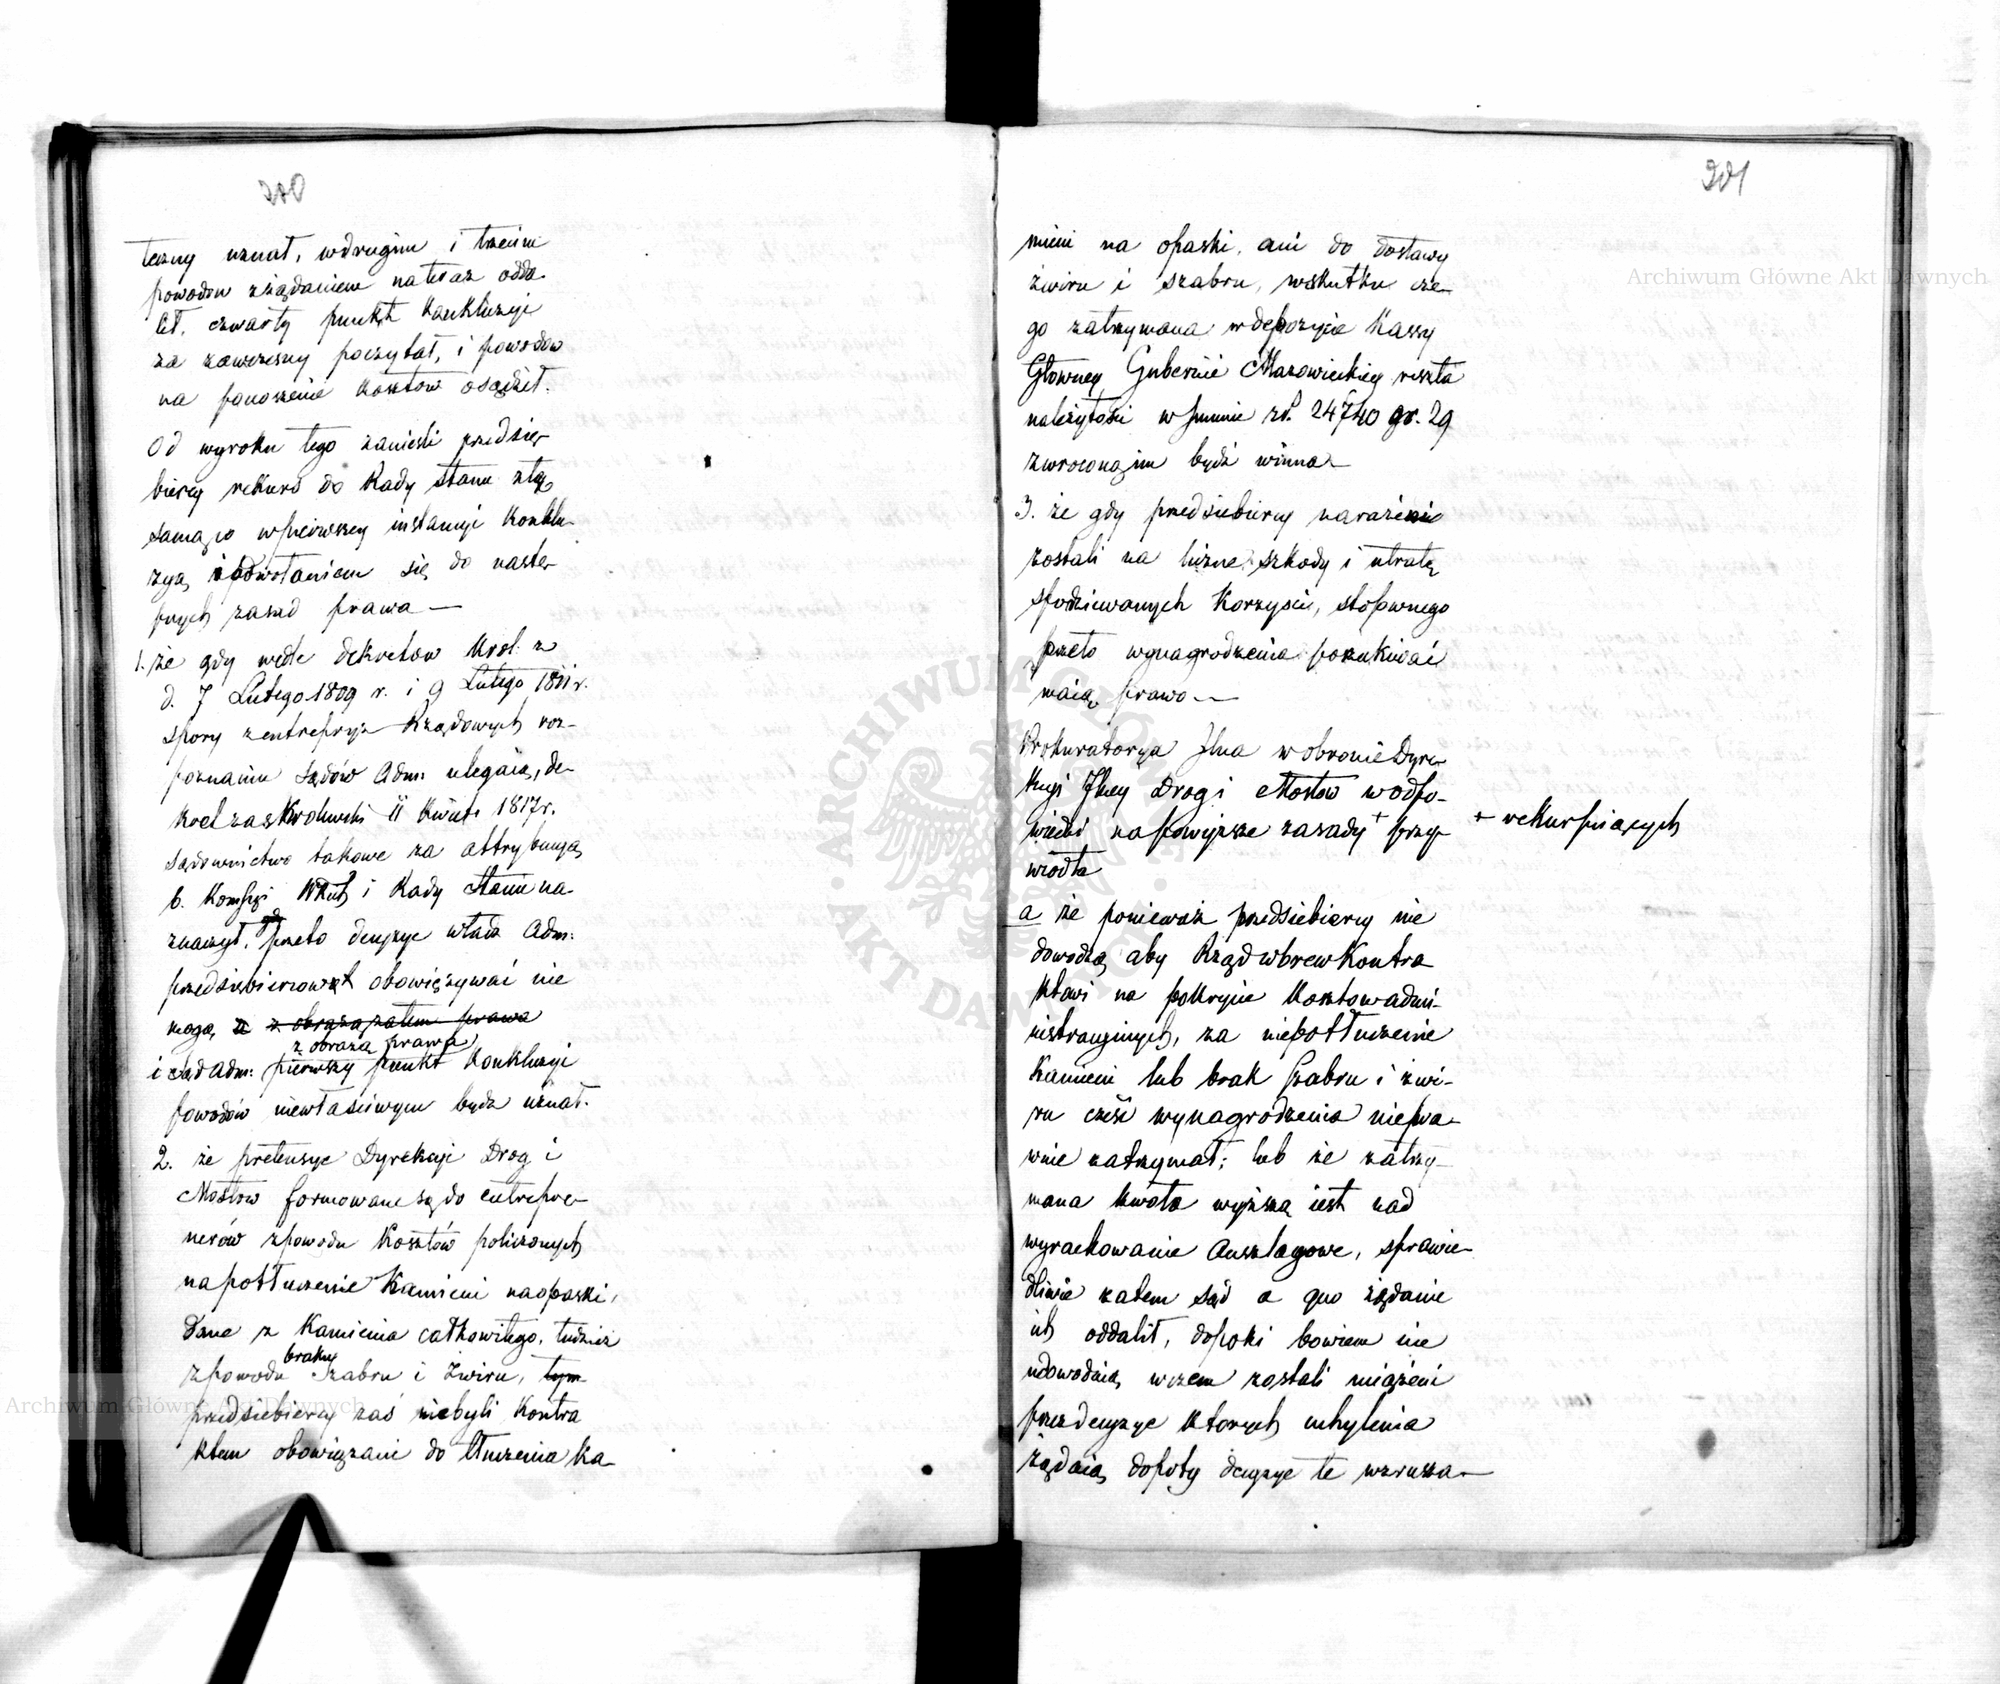 200
teczny uznał, w drugim i trzecim
powodów z żądaniem na teraz odda-
lił. czwarty punkt Konkluzyi
za zawczesny poczytał, i powodów
na ponoszenie kosztów osądził.
Od wyroku tego zanieśli przedsię-
biercy rekurs do Rady Stanu z tą
samą co w pierwszey instancyi Konklu-
zyą, i odwołaniem się do nastę-
pnych zasad prawa —
1. że gdy wedle dekretów Król. z
d. 7 Lutego 1809 r. i 9 Lutego 1811 r.
spory z entrepryz Rządowych roz-
poznaniu Sądów Adm: ulegaią, de-
kret zaś Królewski 11 Kwiet: 1817 r.
sądownictwo takowe za attrybucyą
b. Komissyi i Rady Stanu na-
znaczył, przeto decyzye władz Adm:
przedsiębierców obowiązywać nie
mogą, z obrazą zatem prawa
z obrazą prawa
i Sąd Adm: pierwszy punkt Konkluzyi
powodów niewłaściwym bydź uznał.
2. że pretensye Dyrekcyi Dróg i
Mostów formowane są do entrepre-
nerów z powodu Kosztów policzonych
na potłuczenie Kamieni na opaski,
dane z Kamienia całkowitego, tudzież
braku
z powodu Szabru i Żwiru, tym
przedsiębiercy zaś niebyli Kontra
ktem obowiązani do tłuczenia Ka-
201
mieni na opaski, ani do dostawy
żwiru i szabru, wskutku cze-
go zatrzymana w depozycie Kassy
Główney Gubernii Mazowieckiey reszta
należytości w summie zł. 24740 gr. 29
zwróconą im bydź winna —
3. że gdy przedsiębiercy narażeni
zostali na liczne szkody i utratę
spodziewanych Korzyści, stosownego
przeto wynagrodzenia poszukiwać
maią prawo —
Prokuratorya Jlna w obronie Dyre-
kcyi Jlney Dróg i Mostów w odpo-
wiedzi na powyższe zasady + przy-
+ rekurruiących
wiodła
a że ponieważ przedsiębiercy nie
dowodzą, aby Rząd wbrew Kontra
ktowi na pokrycie Kosztów admi-
nistracyinych, za niepotłuczenie
Kamieni lub brak Szabru i żwi-
ru część wynagrodzenia niepra-
wnie zatrzymał; lub że zatrzy-
mana kwota wyższą iest nad
wyrachowanie Anszlagowe, sprawie-
dliwie zatem Sąd a quo żądanie
ich oddalił, dopóki bowiem nie
udowodnią w czem zostali uciążeni
przez decyzye których uchylenia
żądaią, dopóty decyzye te wzrusza-
Archiwum Główne Akt Dawnych
Archiwum Główne Akt Dawnych
ARCHIWUM GŁÓWNE AKT DAWNYCH